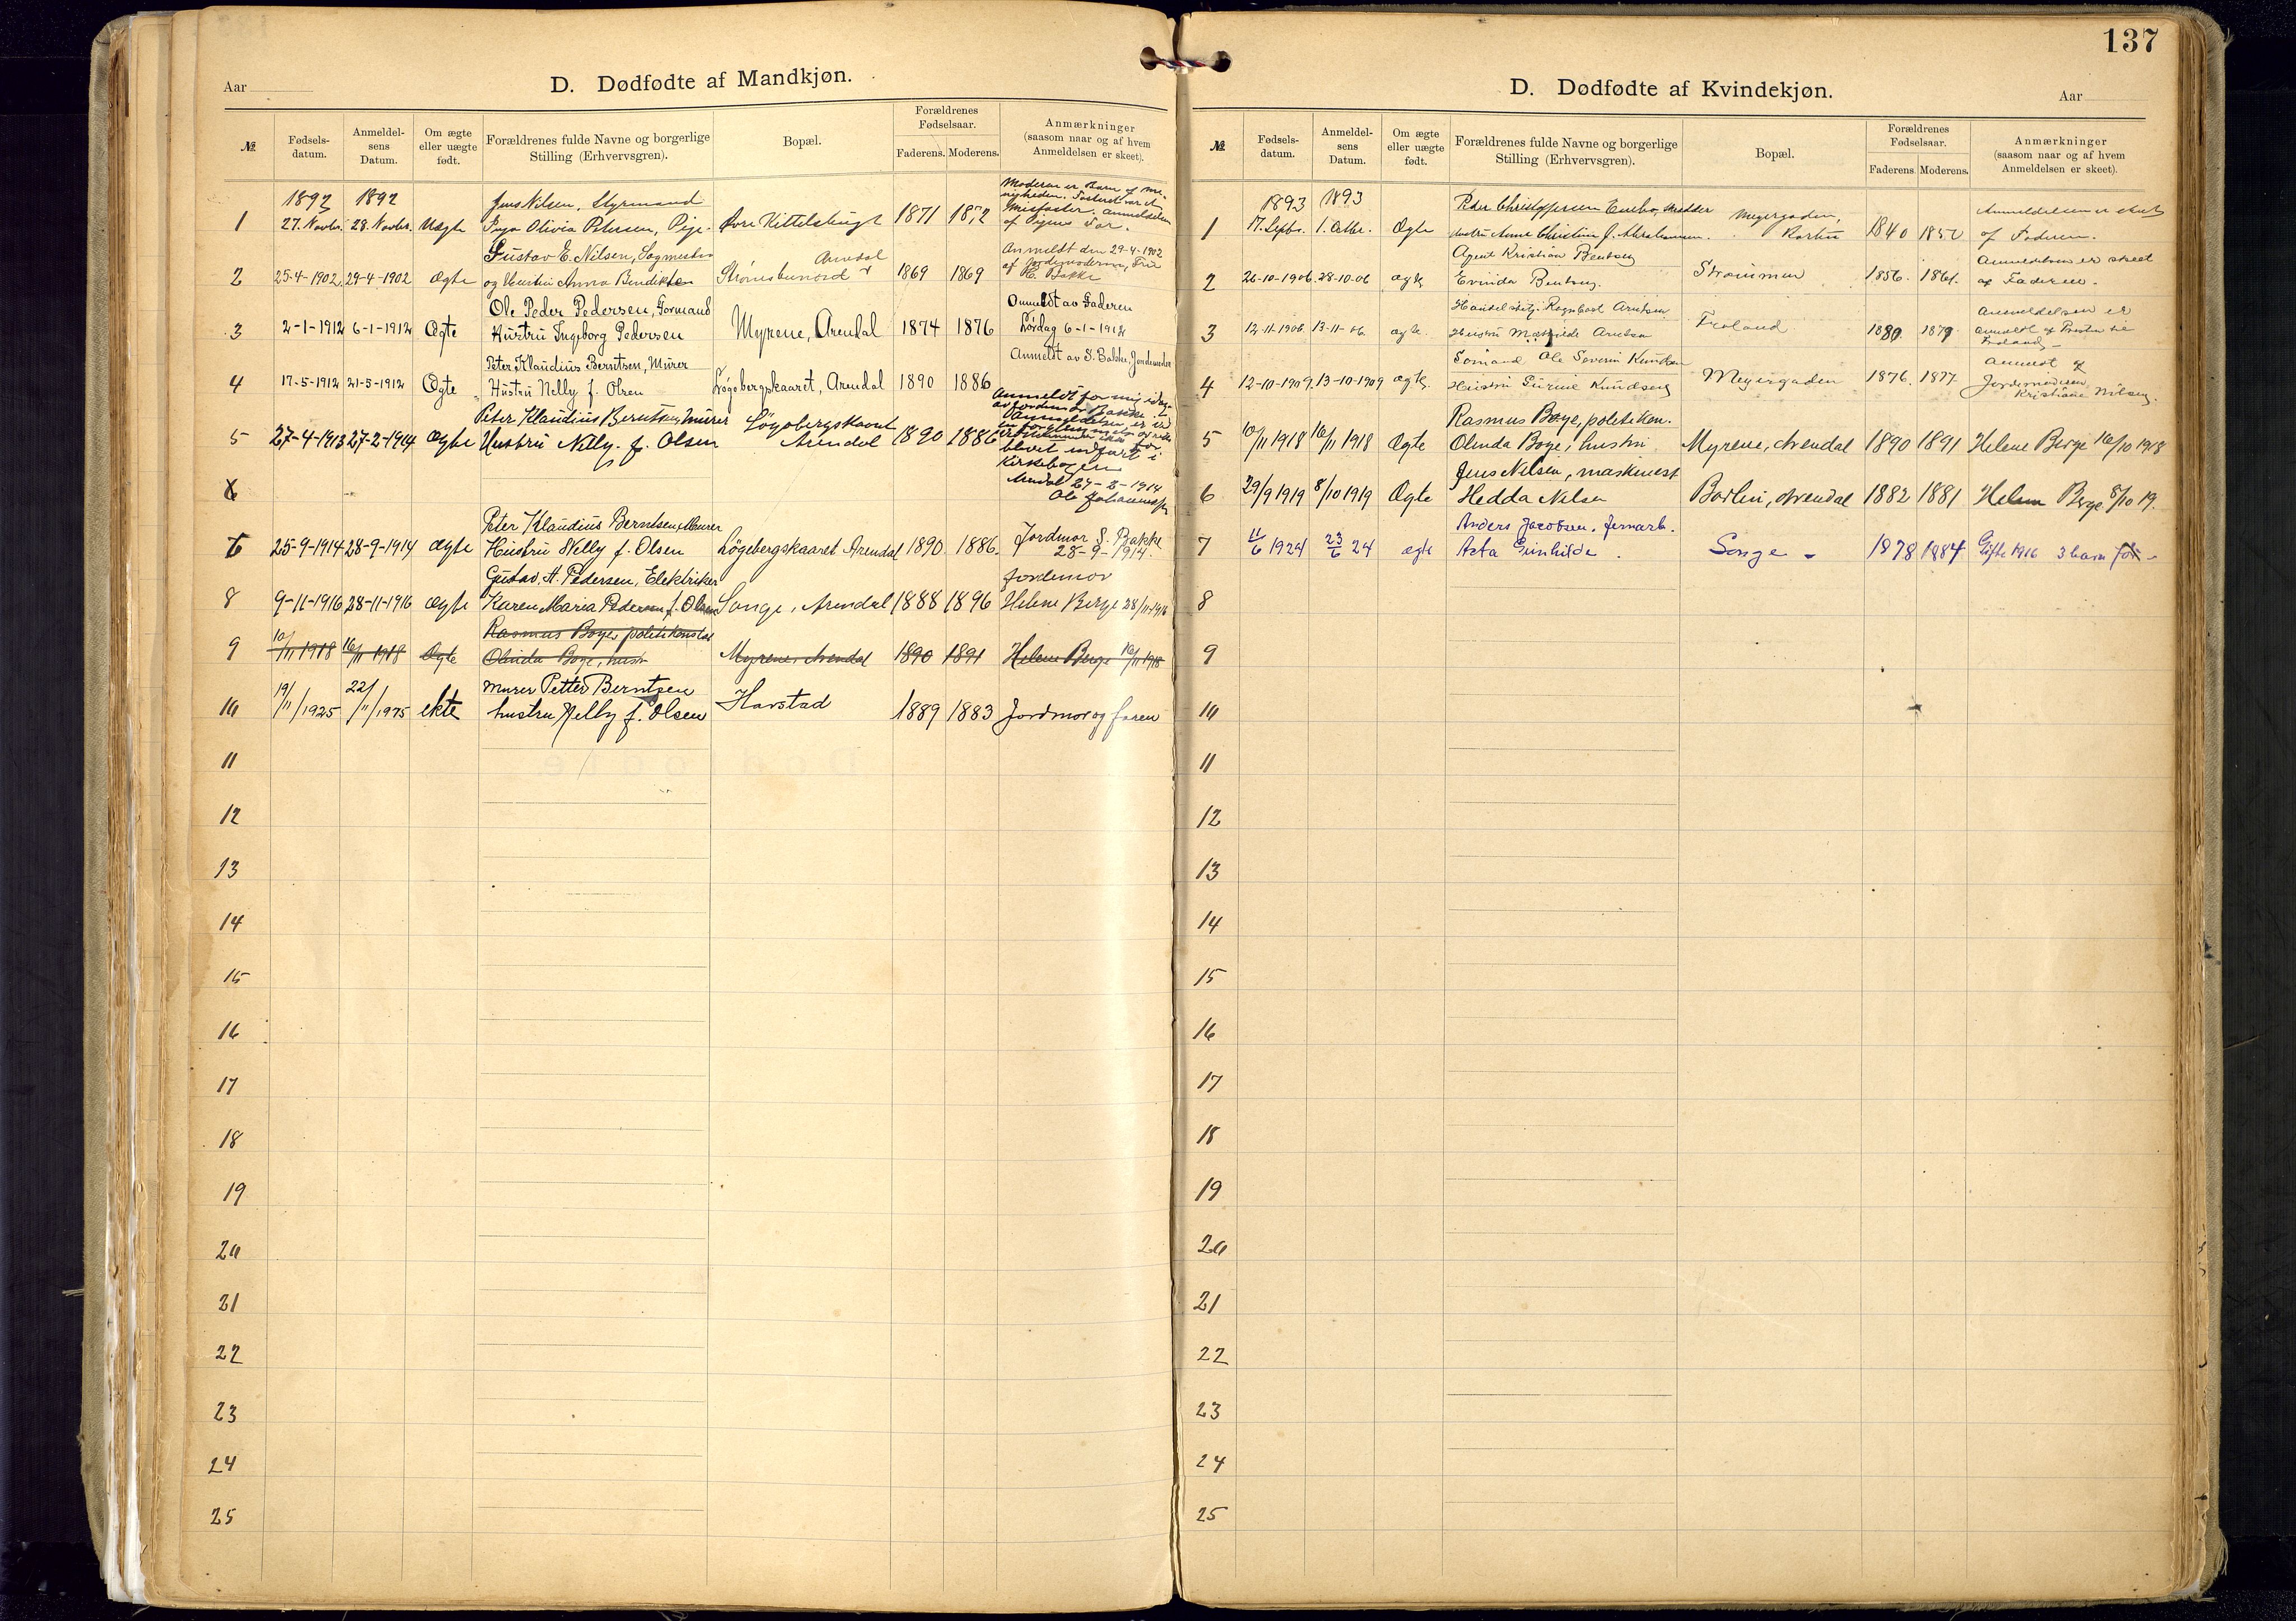 Aar
D. Dødfødte af Mandkjøn.
№
Fødsels-
datum.
Anmeldel-
sens
Datum.
Om ægte
eller uægte
født.
Forældrenes fulde Navne og borgerlige
Stilling (Erhvervsgren).
Bopæl.
Forældrenes
Fødselsaar.
Faderens. Moderens.
Anmærkninger
(saasom naar og af hvem
Anmeldelsen er skeet).
1892 1892 Jens Nilsen, Styrmand
1 27. Novbr. 28. Novbr. Uægte Olivia Petersen, Pige. 1871
af Pigens Far.
Gustav E. Nilsen, Sagmester Arendal Anmeldt den 29-4-1902
2 25-4-1902. 29-4-1902 Ægte og Hustru Anna 1869 1869 Bakke
Ole Peder Pedersen, Formand Anmeldt av Faderen
3 2-1-1912 6-1-1912 Ægte Hustru Ingeborg Pedersen Myrene, Arendal 1874 1876 Lørdag 6-1-1912
Peter Klaudius Berntsen, Murer Anmeldt av S. Bakke, Jordmoder
4 17-5-1912 21-5-1912 Ægte Hustru Nelly f. Olsen Løgebergskaaret, Arendal 1890 1886
Peter Klaudius Berntsen, Murer Løgebergskaaret
5 27-4-1913 27-2-1914 Ægte Hustru Nelly f. Olsen Arendal 1890 1886
blevet indført i
Kirkebogen
Arendal 27-2-1914
Ole Johannessen
6
Peter Klaudius Berntsen, Murer
25-9-1914 28-9-1914 ægte Hustru Nelly f. Olsen Løgebergskaaret Arendal 1890. 1886. Jordmor S. Bakke
28-9-1914.
Gustav A. Pedersen, Elektriker Jordemor
8 9-11-1916 28-11-1916 ægte Karen Maria Pedersen f. Olsen Songe, Arendal 1888 1896 Helene Berge 28/11-1916
Rasmus Boye, politikonstal
9 10/11 1918 16/11 1918 Ægte Olinda Boye, hustr Myrene, Arendal 1890 1891 Helene Berge 16/11 1918
Murer Petter Berntsen
10 19/11/1925 22/11/1925 ekte hustru Nelly f. Olsen Harstad 1889 1883 Jordmor og faren
11
12
13
14
15
16
17
18
19
20
21
22
23
24
25
137
D. Dødfødte af Kvindekjøn.
Aar
№
Fødsels-
datum.
Anmeldel-
sens
Datum.
Om ægte
eller uægte
født.
Forældrenes fulde Navne og borgerlige
Stilling (Erhvervsgren).
Bopæl.
Forældrenes
Fødselsaar.
Faderens. Moderens.
Anmærkninger
(saasom naar og af hvem
Anmeldelsen er skeet).
1893 1893 Peder Christophersen Anmeldelsen er skeet
1 17. Septbr. 1. Ægte Hustru Anne Christine f. Abrahamsen. 1840 af Faderen.
Agent Kristian Bentsen Anmeldelsen er skeet
2 26-10-1906 28-10-06 ægte Evinda Bentsen. Strømmen 1856. 1861. af Faderen.
Arntsen Anmeldelsen er
3 12-11-1906 13-11-06. ægte. Hustru Mathilde Arntsen Froland 1880. 1879 anmeldt af
Froland
Sømand Ole Severin Knudsen Anmeldt af
4 12-10-1909. 13-10-1909 ægte. Hustru Gurine Knudsen Meyergaden 1876. 1877. Jordemoderen
Kristiane Nilsen.
Rasmus Boye, politikon.
5 10/11 1918 16/11 1918 Ægte Olinda Boye, hustru Myrene, Arendal 1890 1891 Helene Berge 16/10 1918
Jens Nilsen, maskinist
6 29/9 1919 8/10 1919 Ægte Hedda Nilsen Barlin, Arendal 1882 1881 Helene Berge 8/10 19.
Anders Jacobsen, jernarb.
7 11/6 1924 23/6 24 ægte Asta Gunhilde. Songe 1878 1884 Gifte 1916 3 barn før
8
9
10
11
12
13
14
15
16
17
18
19
20
21
22
23
24
25